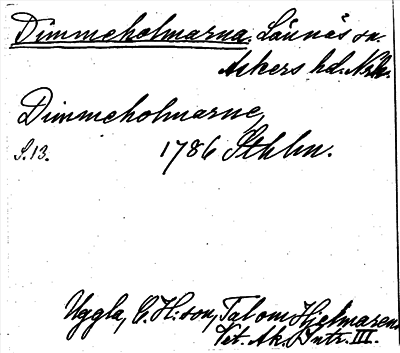 Dimmeholmarna. Lännäs sn.
Askers hd. Nrke.
Dimmeholmarne,
S. 13. 1786 Sthlm.
Uggla, C. H:son, Tal om Hjelmaren.
Vet. Ak. Intr. III.